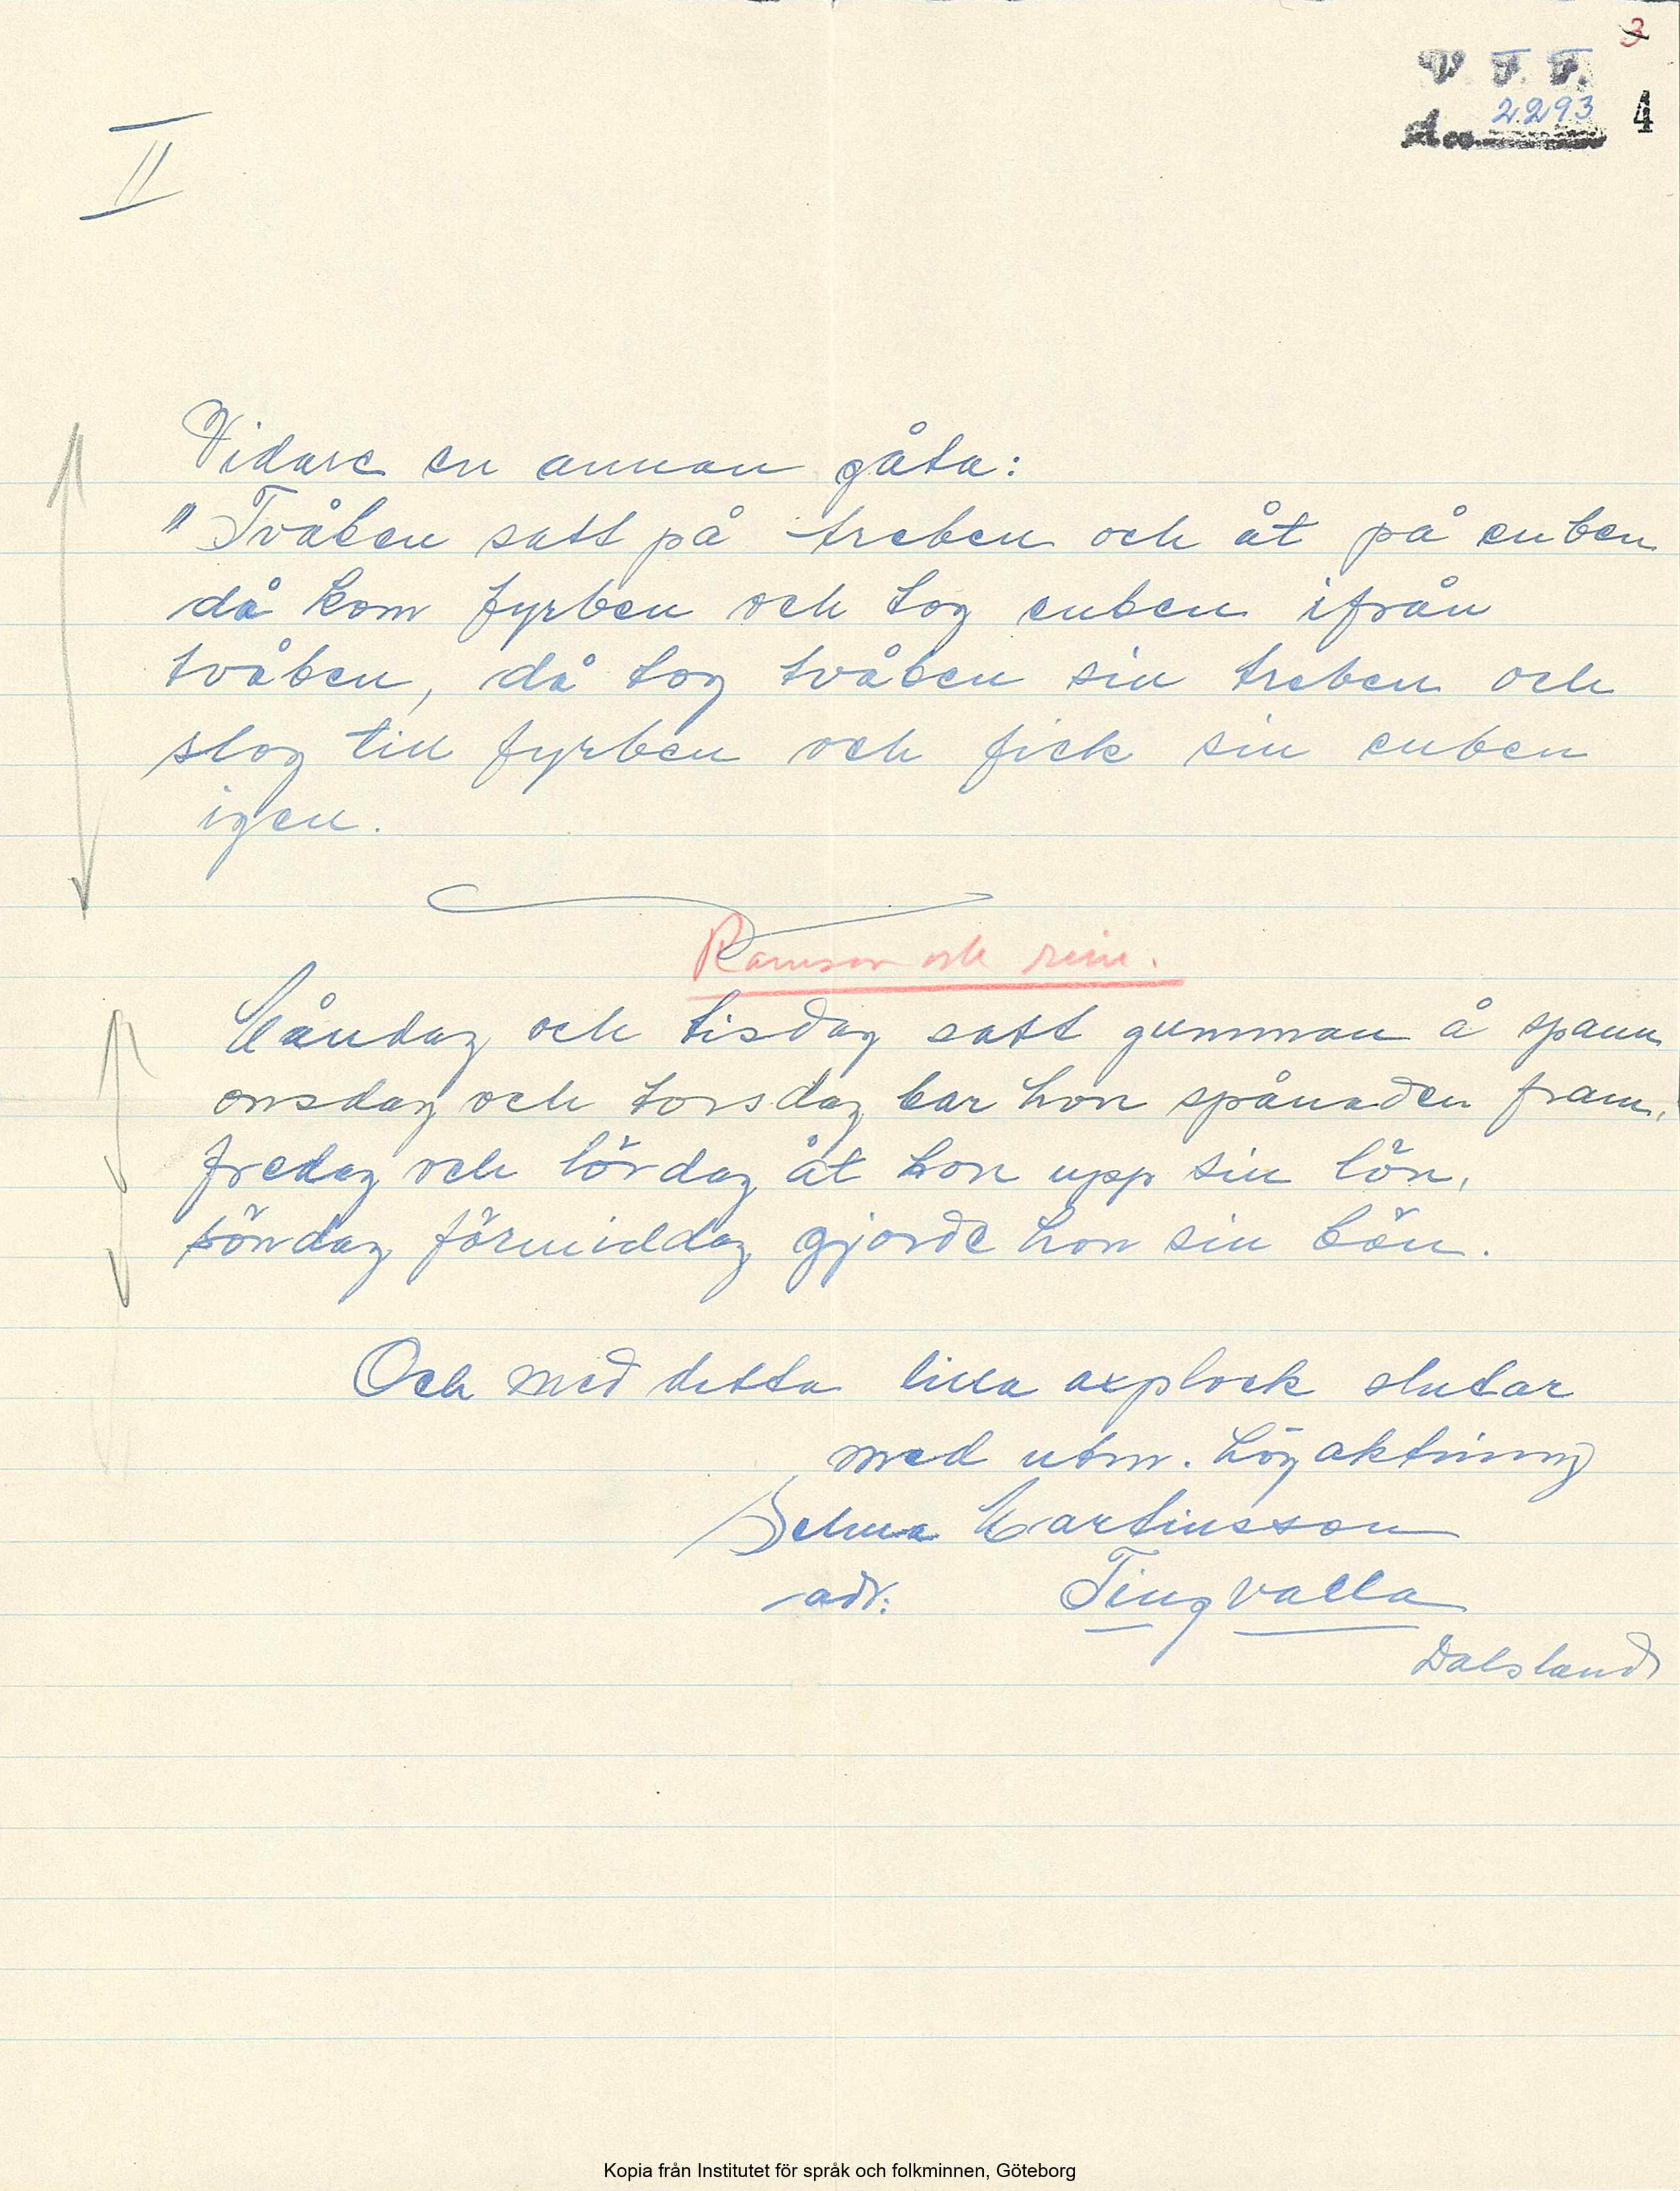 3
V. F. F.
2293
4
II
Vidare en annan gåta:
" Tvåben satt på treben och åt på enben
då kom fyrben och tog enben ifrån
tvåben, då tog tvåben sin treben och
slog till fyrben och fick sin enben
igen.
Ramsor och rim.
Måndag och tisdag satt gumman å spann
onsdag och torsdag bar hon spånaden fram,
fredag och lördag åt hon upp sin lön,
söndag förmiddag gjorde hon sin bön.
Och med detta lilla axplock slutar
med utm. högaktning
Selma Martinsson
adr: Tingvalla
Dalsland
Kopia från Institutet för språk och folkminnen, Göteborg